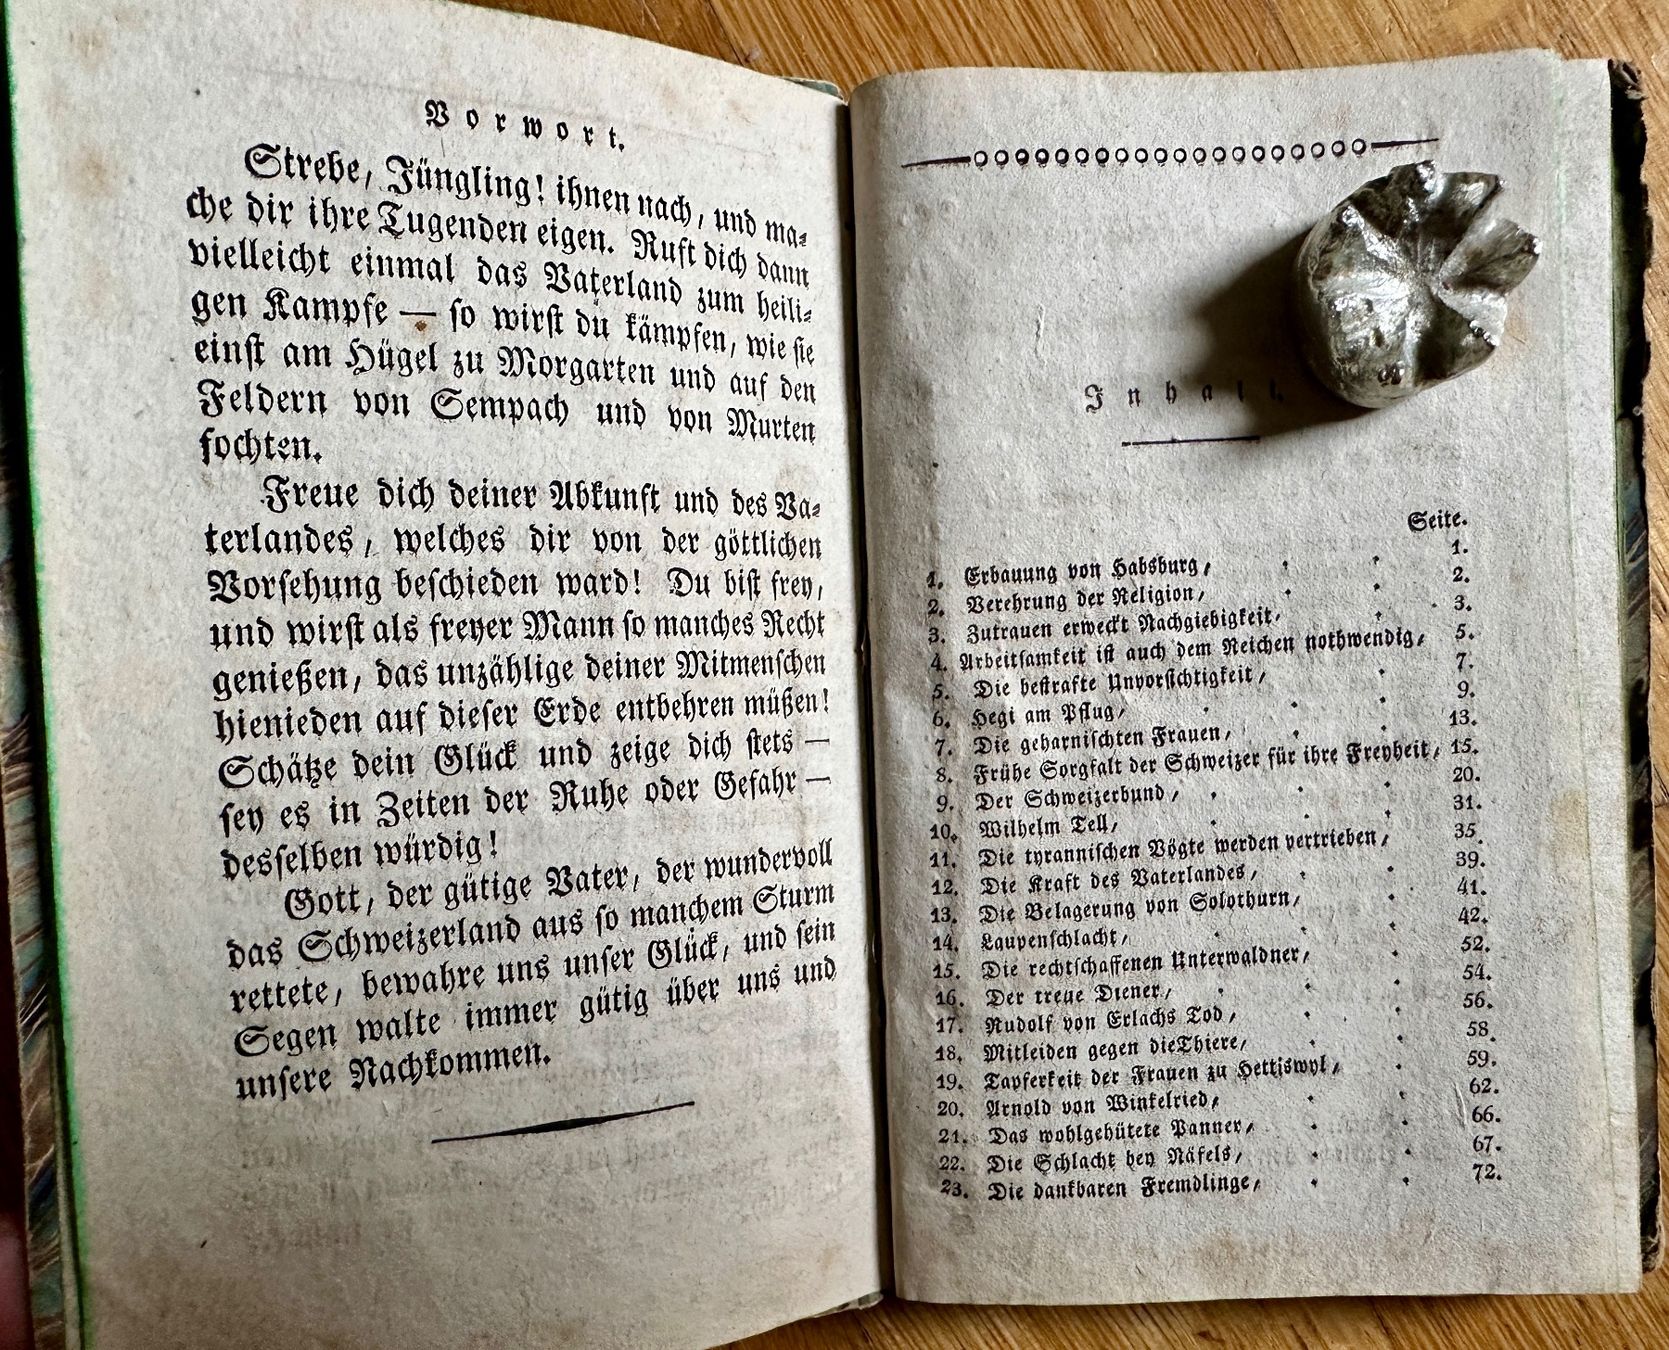 Vorwort.
Strebe, Jüngling! ihnen nach, und ma⸗
che dir ihre Tugenden eigen. Ruft dich dann
vielleicht einmal das Vaterland zum heili⸗
gen Kampfe — so wirst du kämpfen, wie sie
einst am Hügel zu Morgarten und auf den
Feldern von Sempach und von Murten
fochten.
Freue dich deiner Abkunft und des Va⸗
terlandes, welches dir von der göttlichen
Vorsehung beschieden ward! Du bist frey,
und wirst als freyer Mann so manches Recht
genießen, das unzählige deiner Mitmenschen
hienieden auf dieser Erde entbehren müßen!
Schätze dein Glück und zeige dich stets —
sey es in Zeiten der Ruhe oder Gefahr —
desselben würdig!
Gott, der gütige Vater, der wundervoll
das Schweizerland aus so manchem Sturm
rettete, bewahre uns unser Glück, und sein
Segen walte immer gütig über uns und
unsere Nachkommen.
Inhalt.
Seite.
1. Erbauung von Habsburg, 1.
2. Verehrung der Religion, 2.
3. Zutrauen erweckt Nachgiebigkeit, 3.
4. Arbeitsamkeit ist auch dem Reichen nothwendig, 5.
5. Die bestrafte Unvorsichtigkeit, 7.
6. Hegi am Pflug, 9.
7. Die geharnischten Frauen, 13.
8. Frühe Sorgfalt der Schweizer für ihre Freyheit, 15.
9. Der Schweizerbund, 20.
10. Wilhelm Tell, 31.
11. Die tyrannischen Vögte werden vertrieben, 35.
12. Die Kraft des Vaterlandes, 39.
13. Die Belagerung von Solothurn, 41.
14. Laupenschlacht, 42.
15. Die rechtschaffenen Unterwaldner, 52.
16. Der treue Diener, 54.
17. Rudolf von Erlachs Tod, 56.
18. Mitleiden gegen die Thiere, 58.
19. Tapferkeit der Frauen zu Hettiswyl, 59.
20. Arnold von Winkelried, 62.
21. Das wohlgehütete Panner, 66.
22. Die Schlacht bey Näfels, 67.
23. Die dankbaren Fremdlinge, 72.